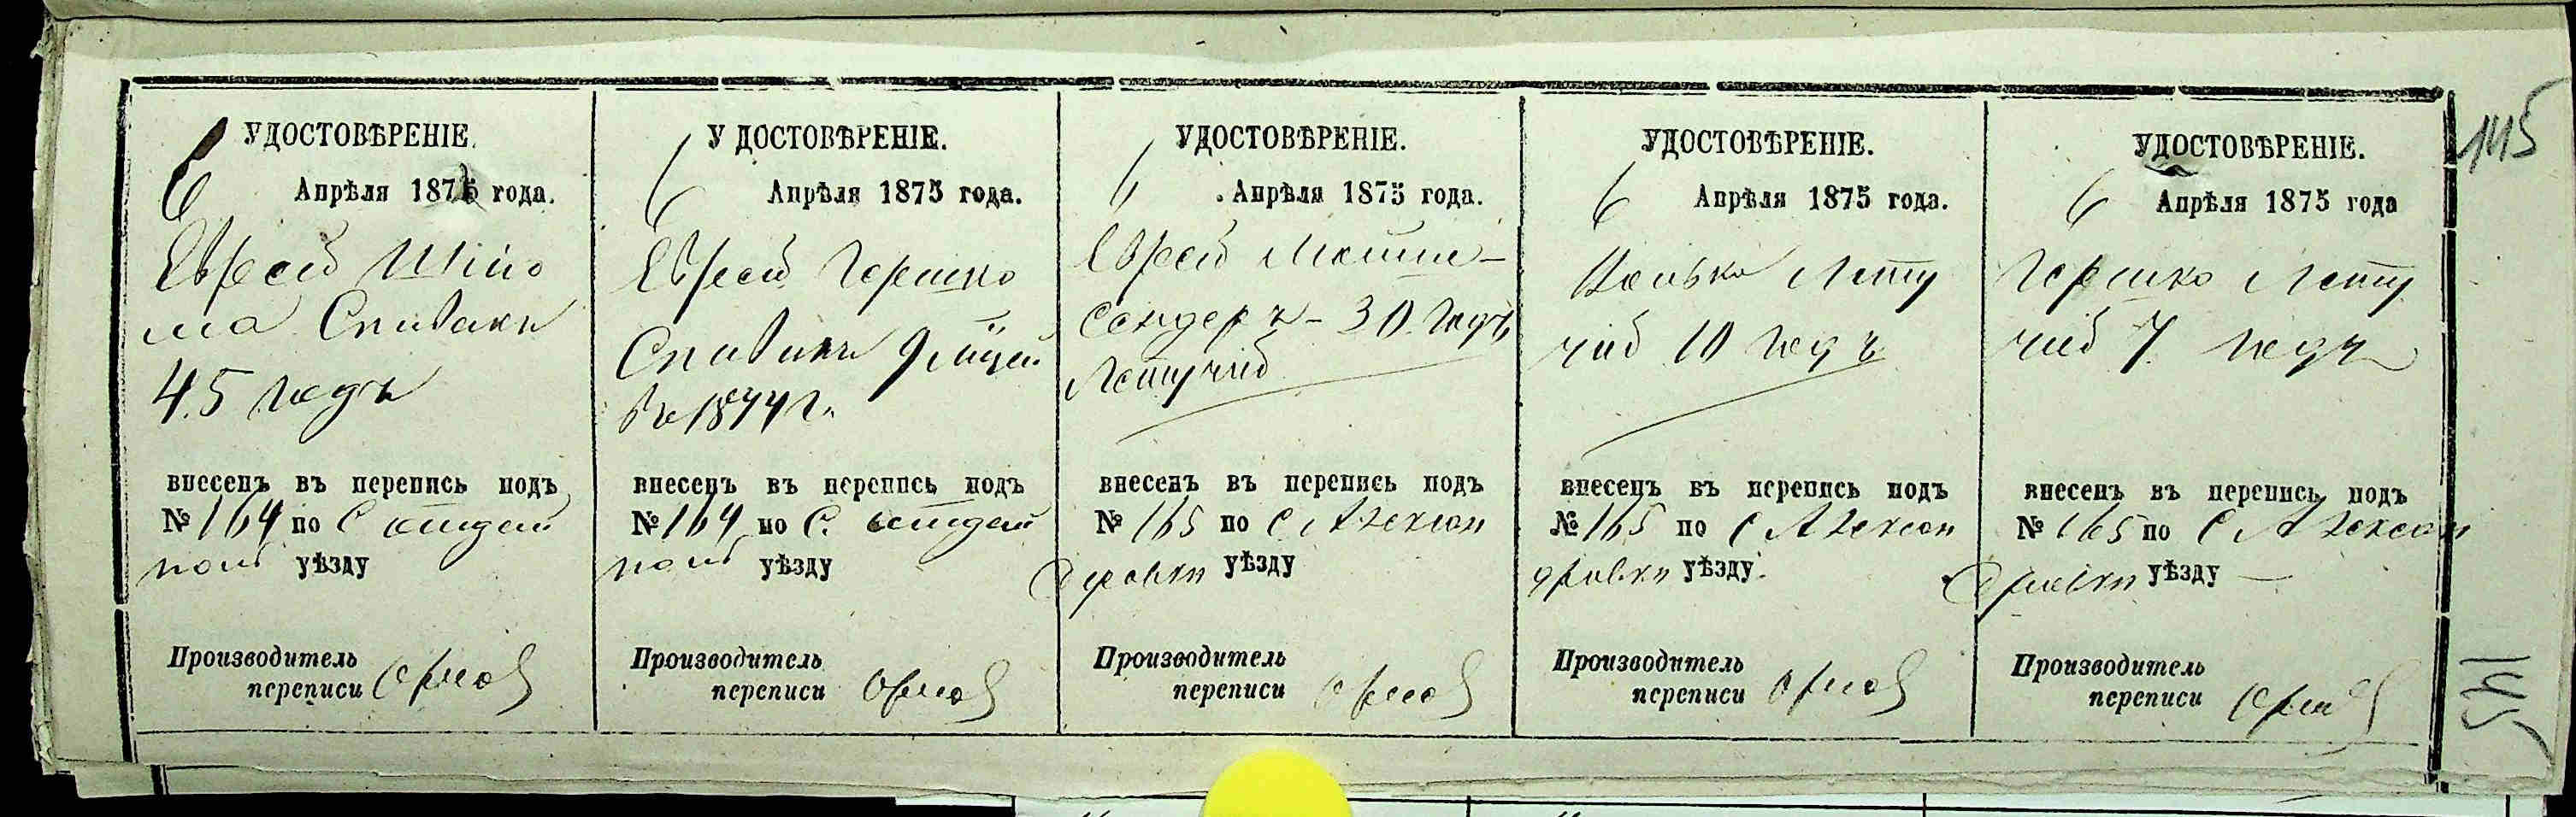 145
УДОСТОВѢРЕНІЕ.
6 Апрѣля 1875 года.
Еврей Шлйо
ма Спивакъ
45 годъ
внесенъ въ перепись подъ
№ 164 по С
уѣзду
Производитель
переписи Орлов
УДОСТОВѢРЕНІЕ.
6 Апрѣля 1875 года.
Еврей Гершко
Спивакъ
въ 1874 г.
внесенъ въ перепись подъ
№ 164 по С.
уѣзду
Производитель
переписи Орлов
УДОСТОВѢРЕНІЕ.
6 Апрѣля 1875 года.
Еврей Мошко-
Сендеръ - 30 годъ
Летучій
внесенъ въ перепись подъ
№ 165 по С Алексан
дровки уѣзду
Производитель
переписи Орлов
УДОСТОВѢРЕНІЕ.
6 Апрѣля 1875 года.
Лету
чій 10 годъ
внесенъ въ перепись подъ
№ 165 по С Алексан
дровки уѣзду.
Производитель
переписи Орлов
УДОСТОВѢРЕНІЕ.
6 Апрѣля 1875 года
Гершко Лету
чій 7 годъ
внесенъ въ перепись подъ
№ 165 по С Алексан
дровки уѣзду
Производитель
переписи Орлов
145